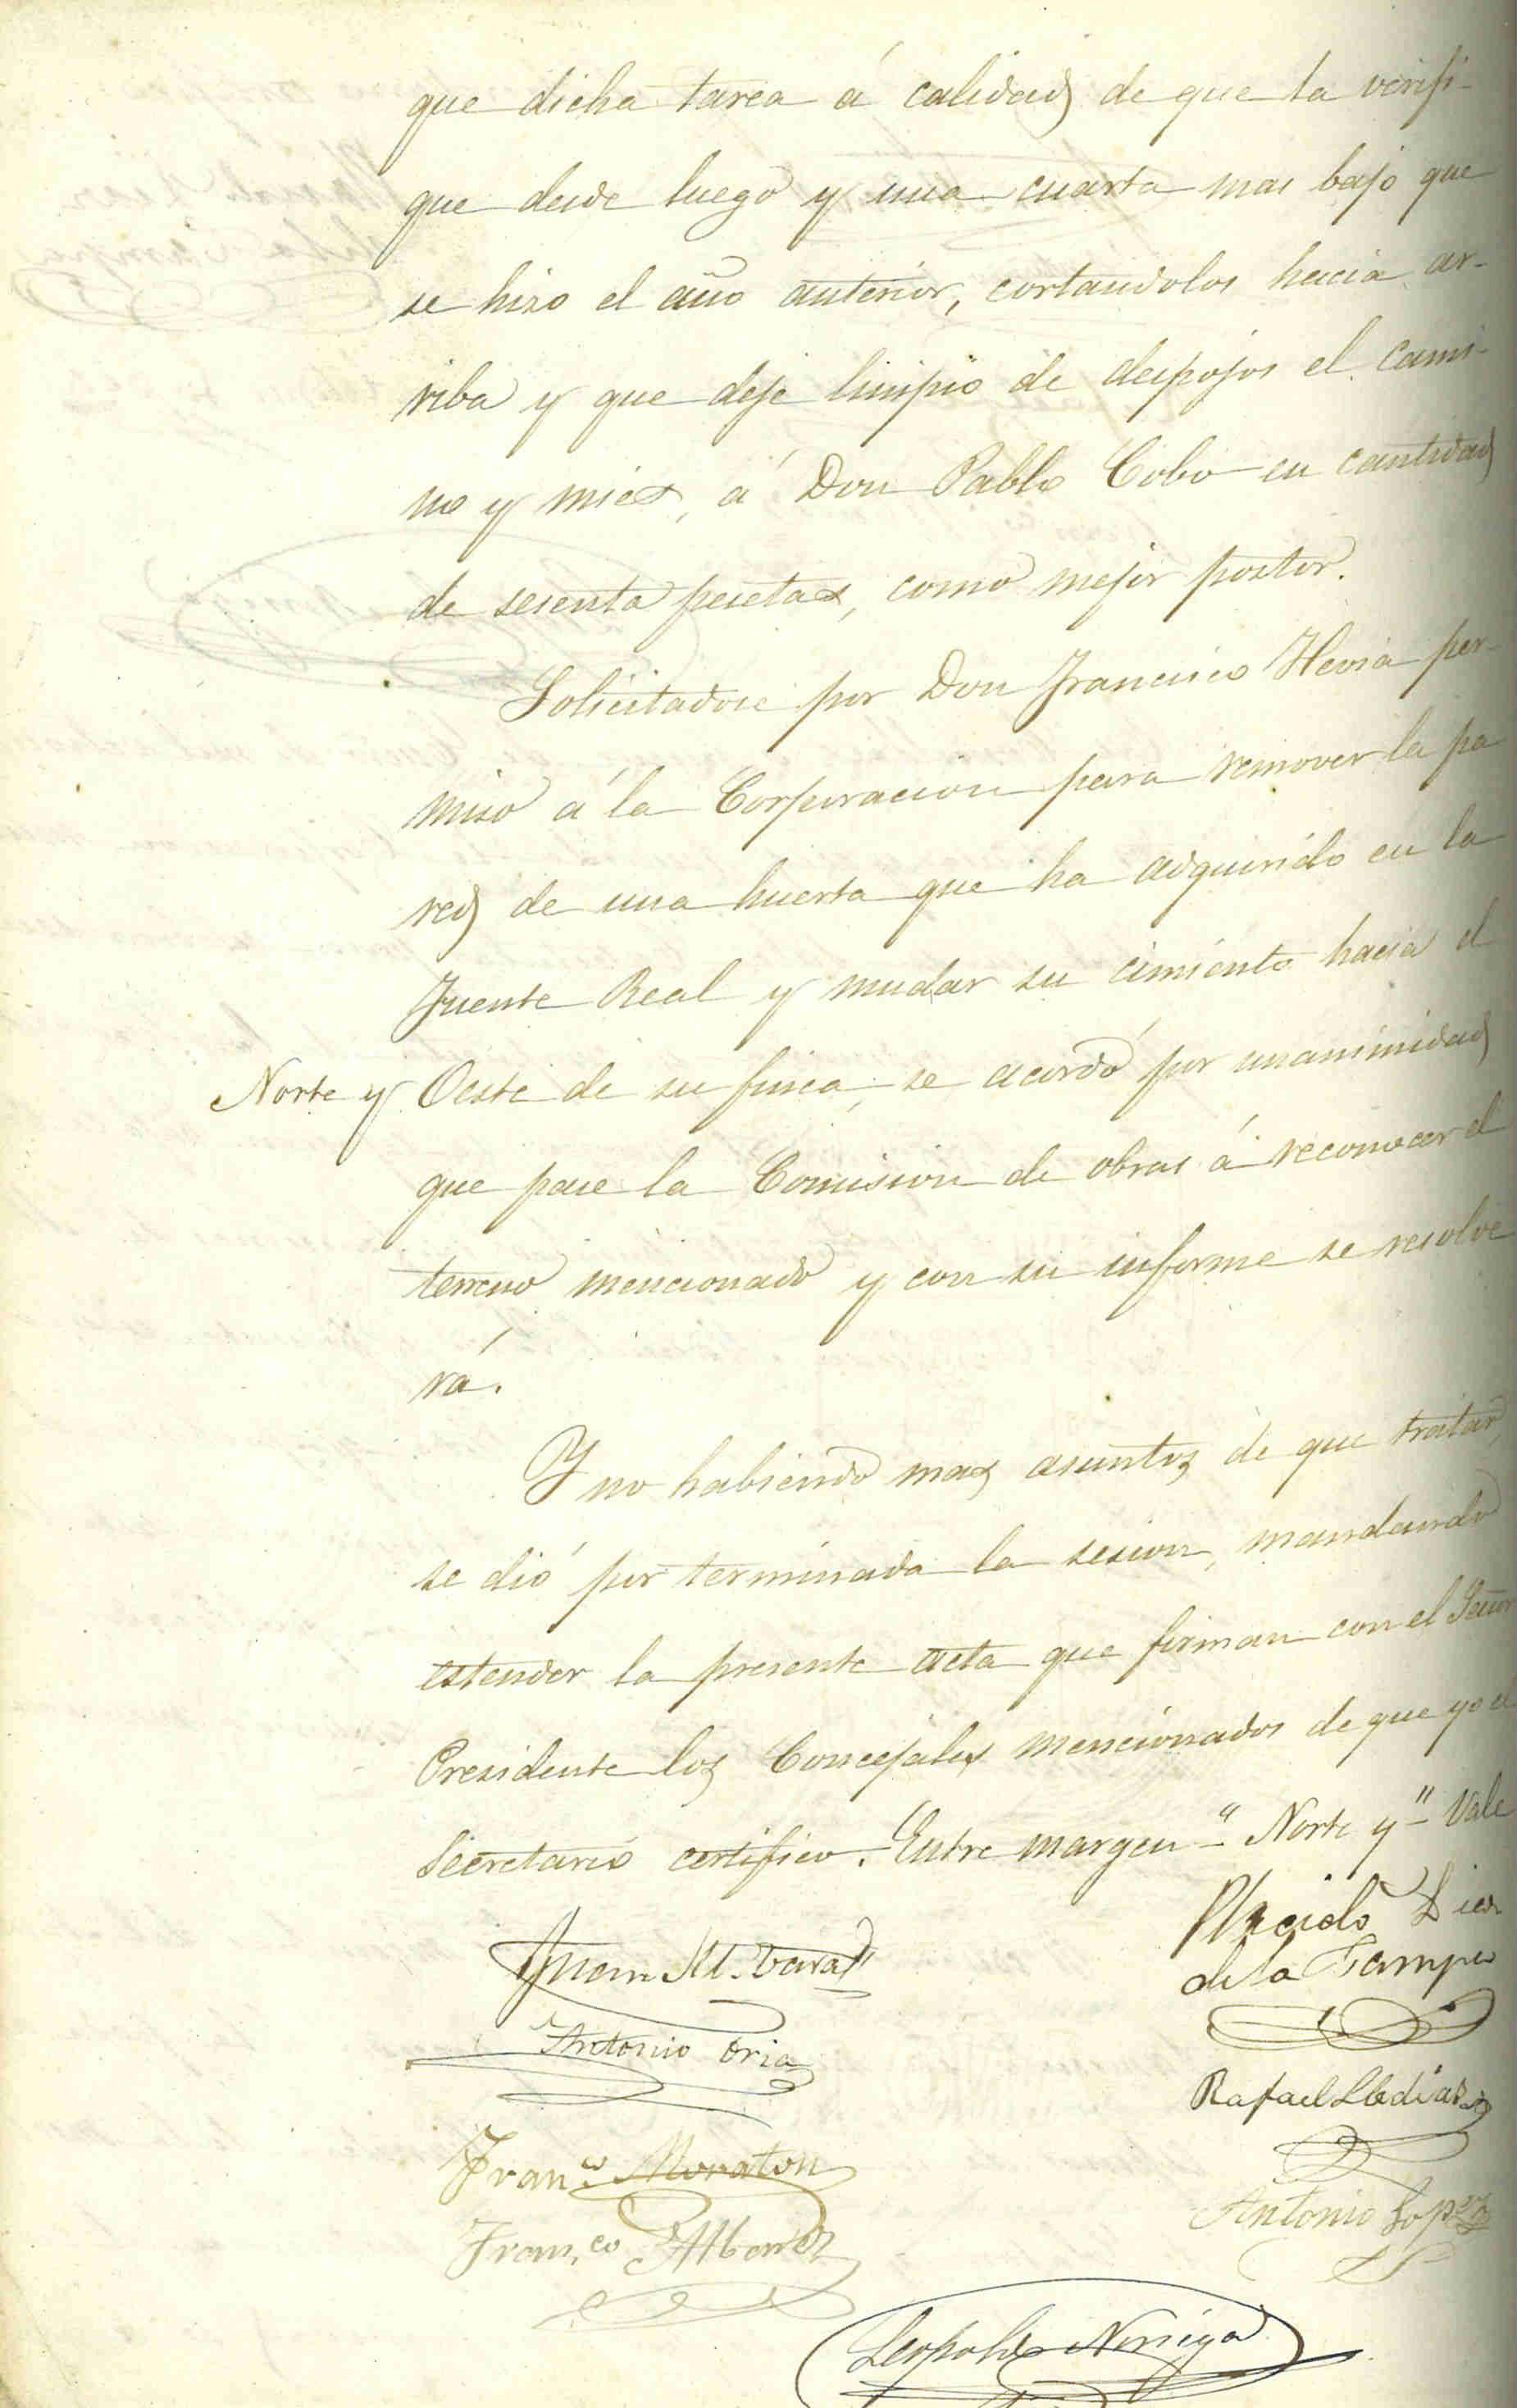 que dicha tarea á calidad de que la verifi-
que desde luego y una cuarta mas bajo que
se hizo el año anterior, cortandolos hacia ar-
riba y que deje limpio de despojos el cami-
no y mies, á Don Pablo Cobo en cantidad
de sesenta pesetas, como mejor postor.
Solicitadose por Don Francisco Hevia per-
miso á la Corporacion para remover la pa
red de una huerta que ha adquirido en la
Fuente Real y mudar su cimiento hacia el
Norte y Oeste de su finca, se acordó por unanimidad
que pase la Comision de obras á reconocer el
terreno mencionado y con su informe se resolve
rá.
Y no habiendo mas asuntos de que tratar,
se dió por terminada la sesion, mandando
estender la presente acta que firman con el Señor
Presidente los Concejales mencionados de que yo el
Secretario certifico. Entre margen "Norte y" Vale
Placido Diez
de la Campa
Juan M.
Antonio Oria
Rafael
Fran.co Moraton
Antonio Lopez
Fran.co
Leopoldo Noriega